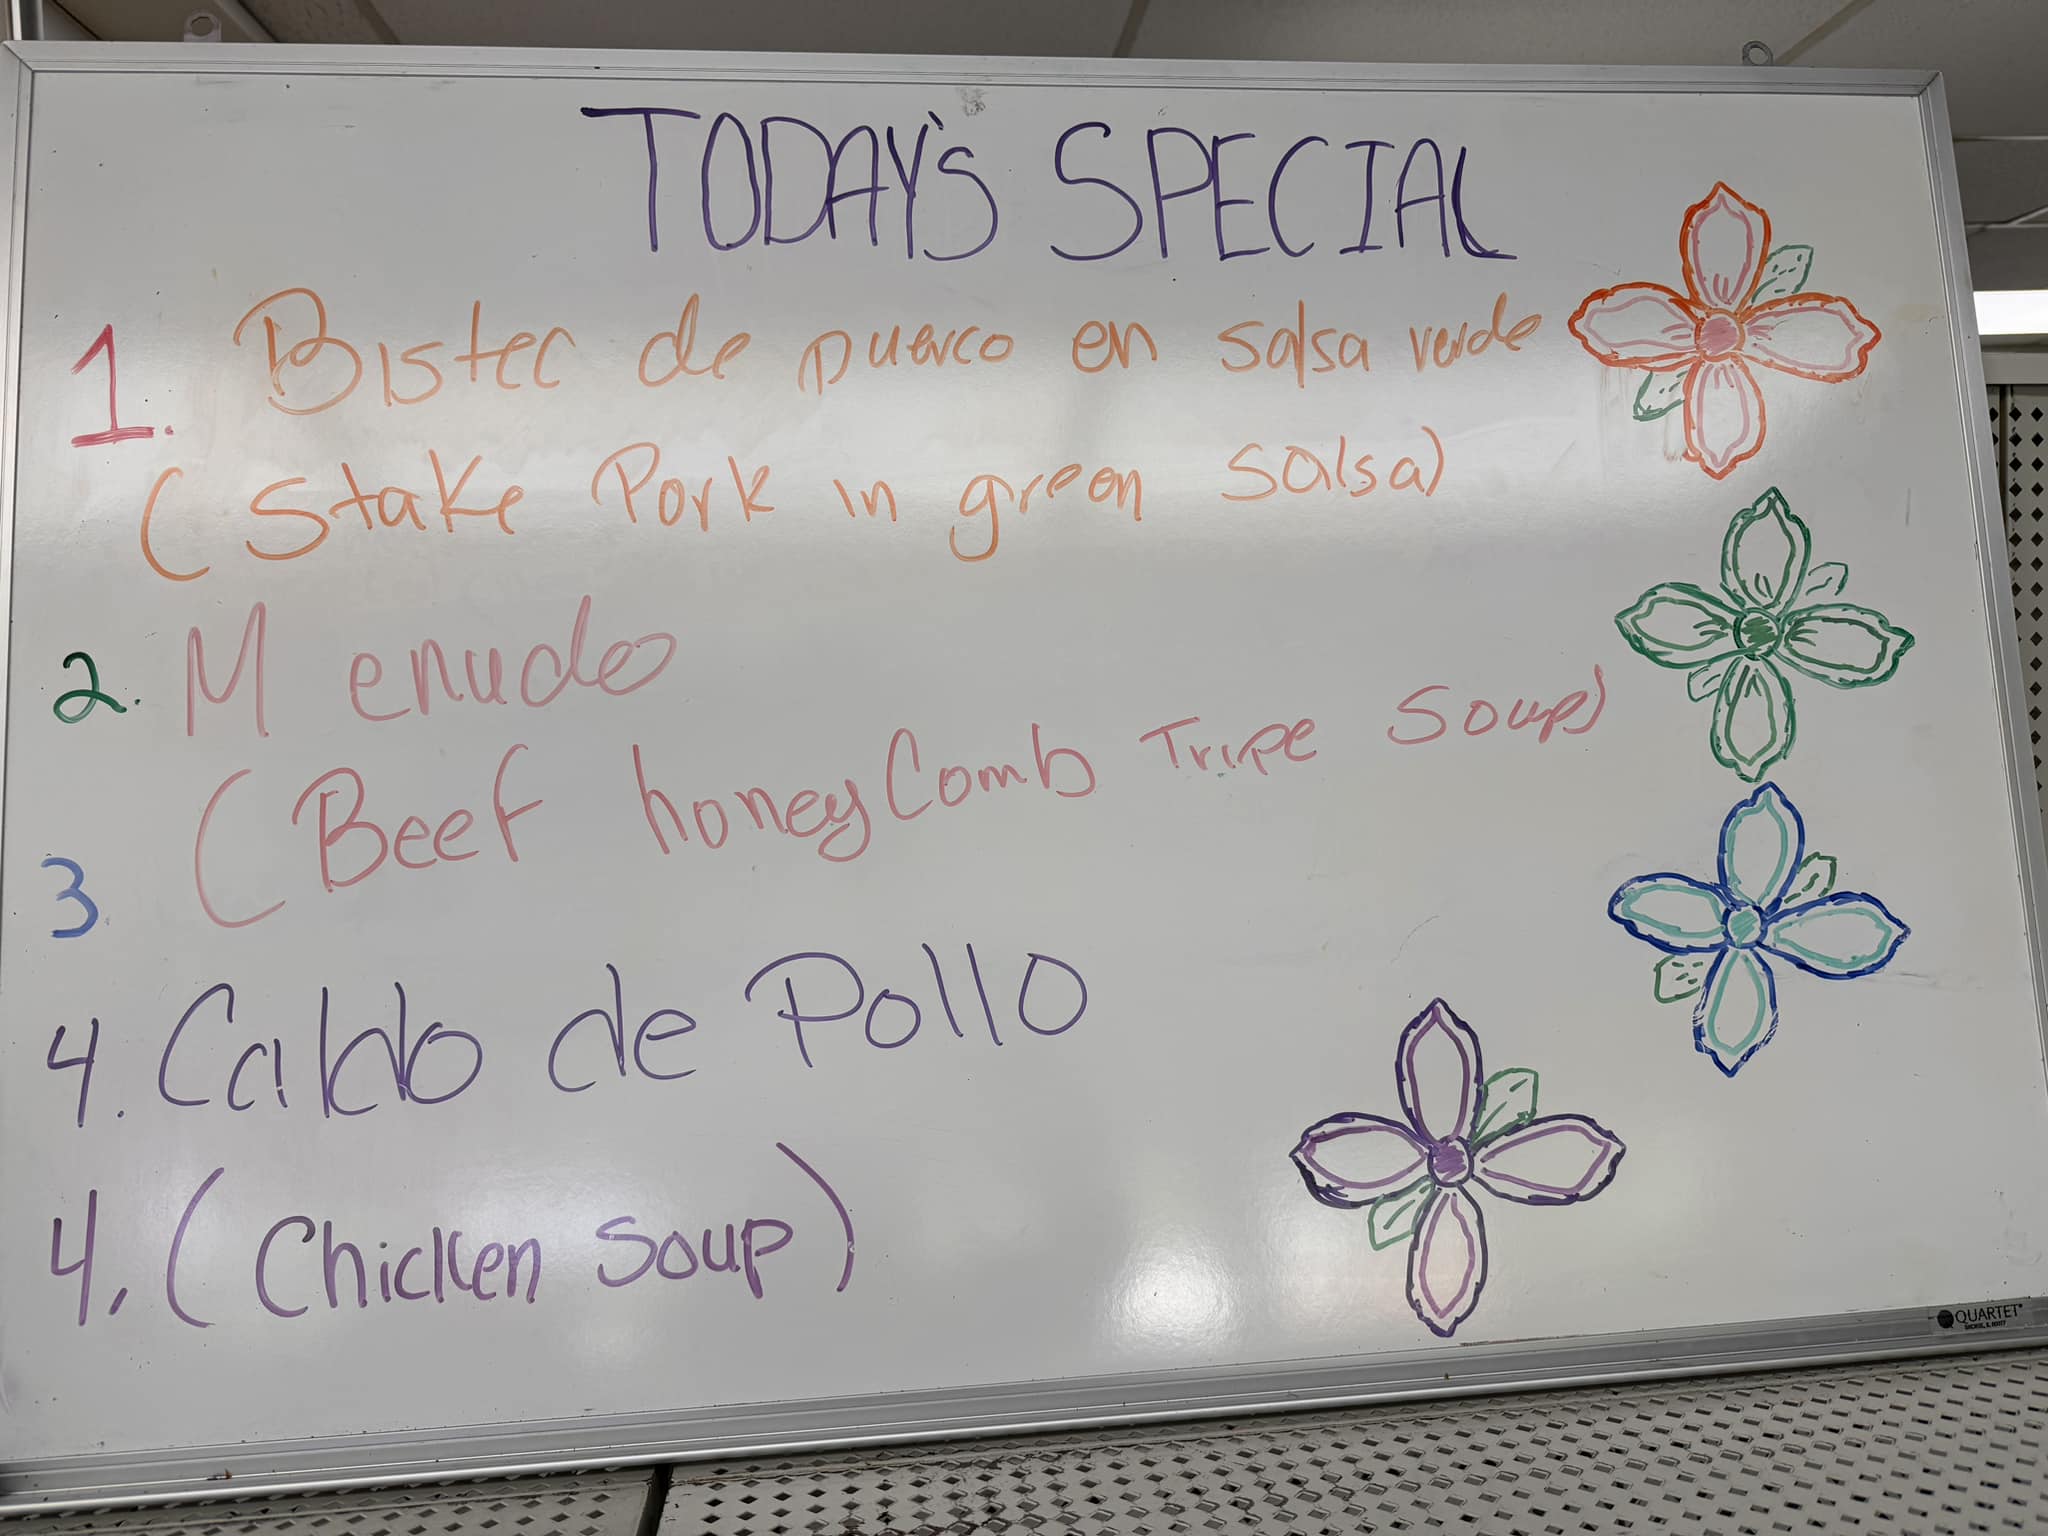 TODAY'S SPECIAL
1. Bistec de puerco en salsa verde
(Stake Pork in green salsa)
2. Menudo
(Beef honeyComb Tripe Soup)
3
4. Caldo de Pollo
4. (Chicken soup)
QUARTET